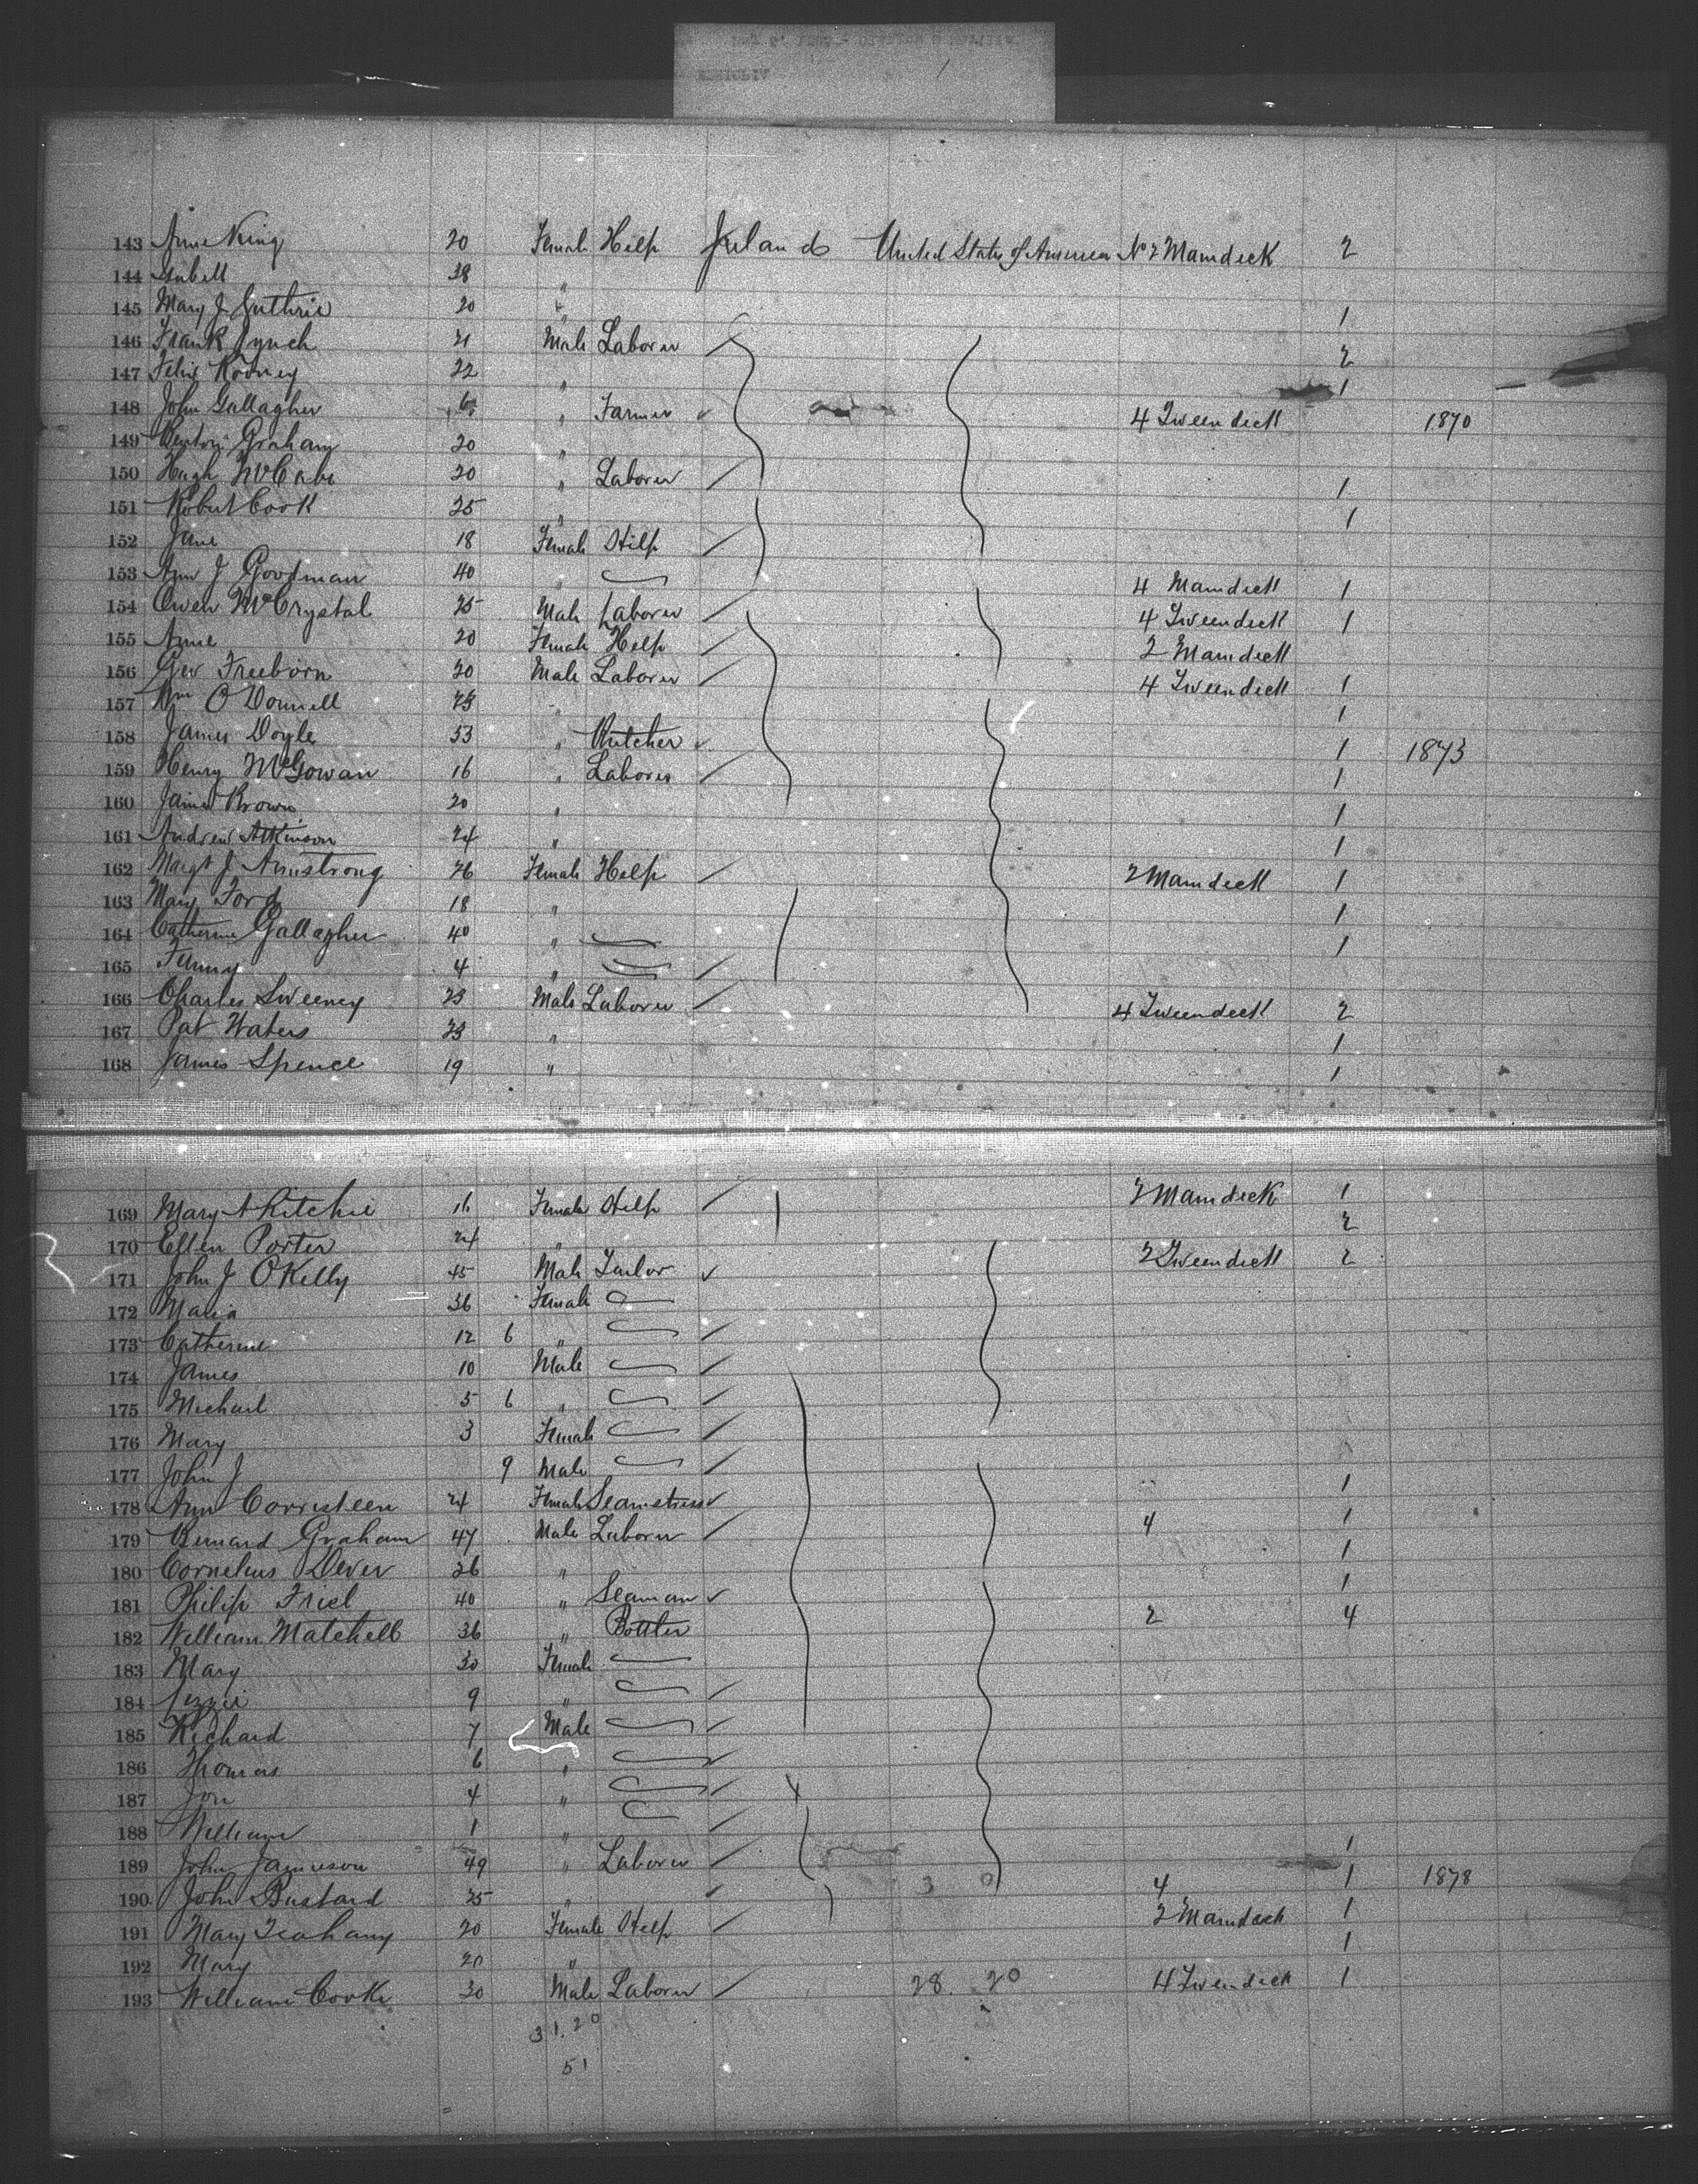 143 Anne King 20 Female Help Ireland United States of America No 2 Maindeck 2
144 Isabell 38 "
145 Mary J Guthrie 20 " 1
146 Frank Lynch 21 Male Laborer 2
147 Felix Rooney 22 " 1
148 John Gallagher " Farmer 4 Tweendeck 1870
149 Graham 20 "
150 Hugh McCabe 20 " Laborer 1
151 Robert Cook 25 " 1
152 Jane 18 Female Help
153 Ann J Goodman 40 " 4 Maindeck 1
154 Owen McCrystal 25 Male Laborer 4 Tweendeck 1
155 Anne 20 Female Help 2 Maindeck
156 Geo Freeborn 20 Male Laborer 4 Tweendeck 1
157 Wm O'Donnell 23 " 1
158 James Doyle 33 " Butcher 1 1873
159 Henry McGowan 16 " Laborer 1
160 James Brown 20 " 1
161 Andrew Atkinson 24 " 1
162 Margt J Armstrong 26 Female Help 2 Maindeck 1
163 Mary Ford 18 " 1
164 Catherine Gallagher 40 " 1
165 Fanny 4 "
166 Charles Sweeney 23 Male Laborer 4 Tweendeck 2
167 Pat Waters 23 " 1
168 James Spence 19 " 1
169 Mary A Ritchie 16 Female Help 2 Maindeck 1
170 Ellen Porter 24 " 2
171 John J OKelly 45 Male Tailor 2 Tweendeck 2
172 Maria 36 Female
173 Catherine 12 6 "
174 James 10 Male
175 Michael 5 6 "
176 Mary 3 Female
177 John J 9 Male
178 Ann Corristeen 24 Female Seamstress 1
179 Bernard Graham 47 Male Laborer 4 1
180 Cornelius Dever 26 " 1
181 Philip Friel 40 " Seaman 1
182 William Matchell 36 " Bottler 2 4
183 Mary 30 Female
184 Lizzie 9 "
185 Richard 7 Male
186 Thomas 6 "
187 4 "
188 William 1 "
189 John Jamieson 49 " Laborer 1
190 John Bustard 25 " 3 0 4 1 1878
191 Mary 20 Female Help 2 Maindeck 1
192 Mary 20 " 1
193 William Cooke 30 Male Laborer 28. 20 4 Tweendeck 1
31.20
51